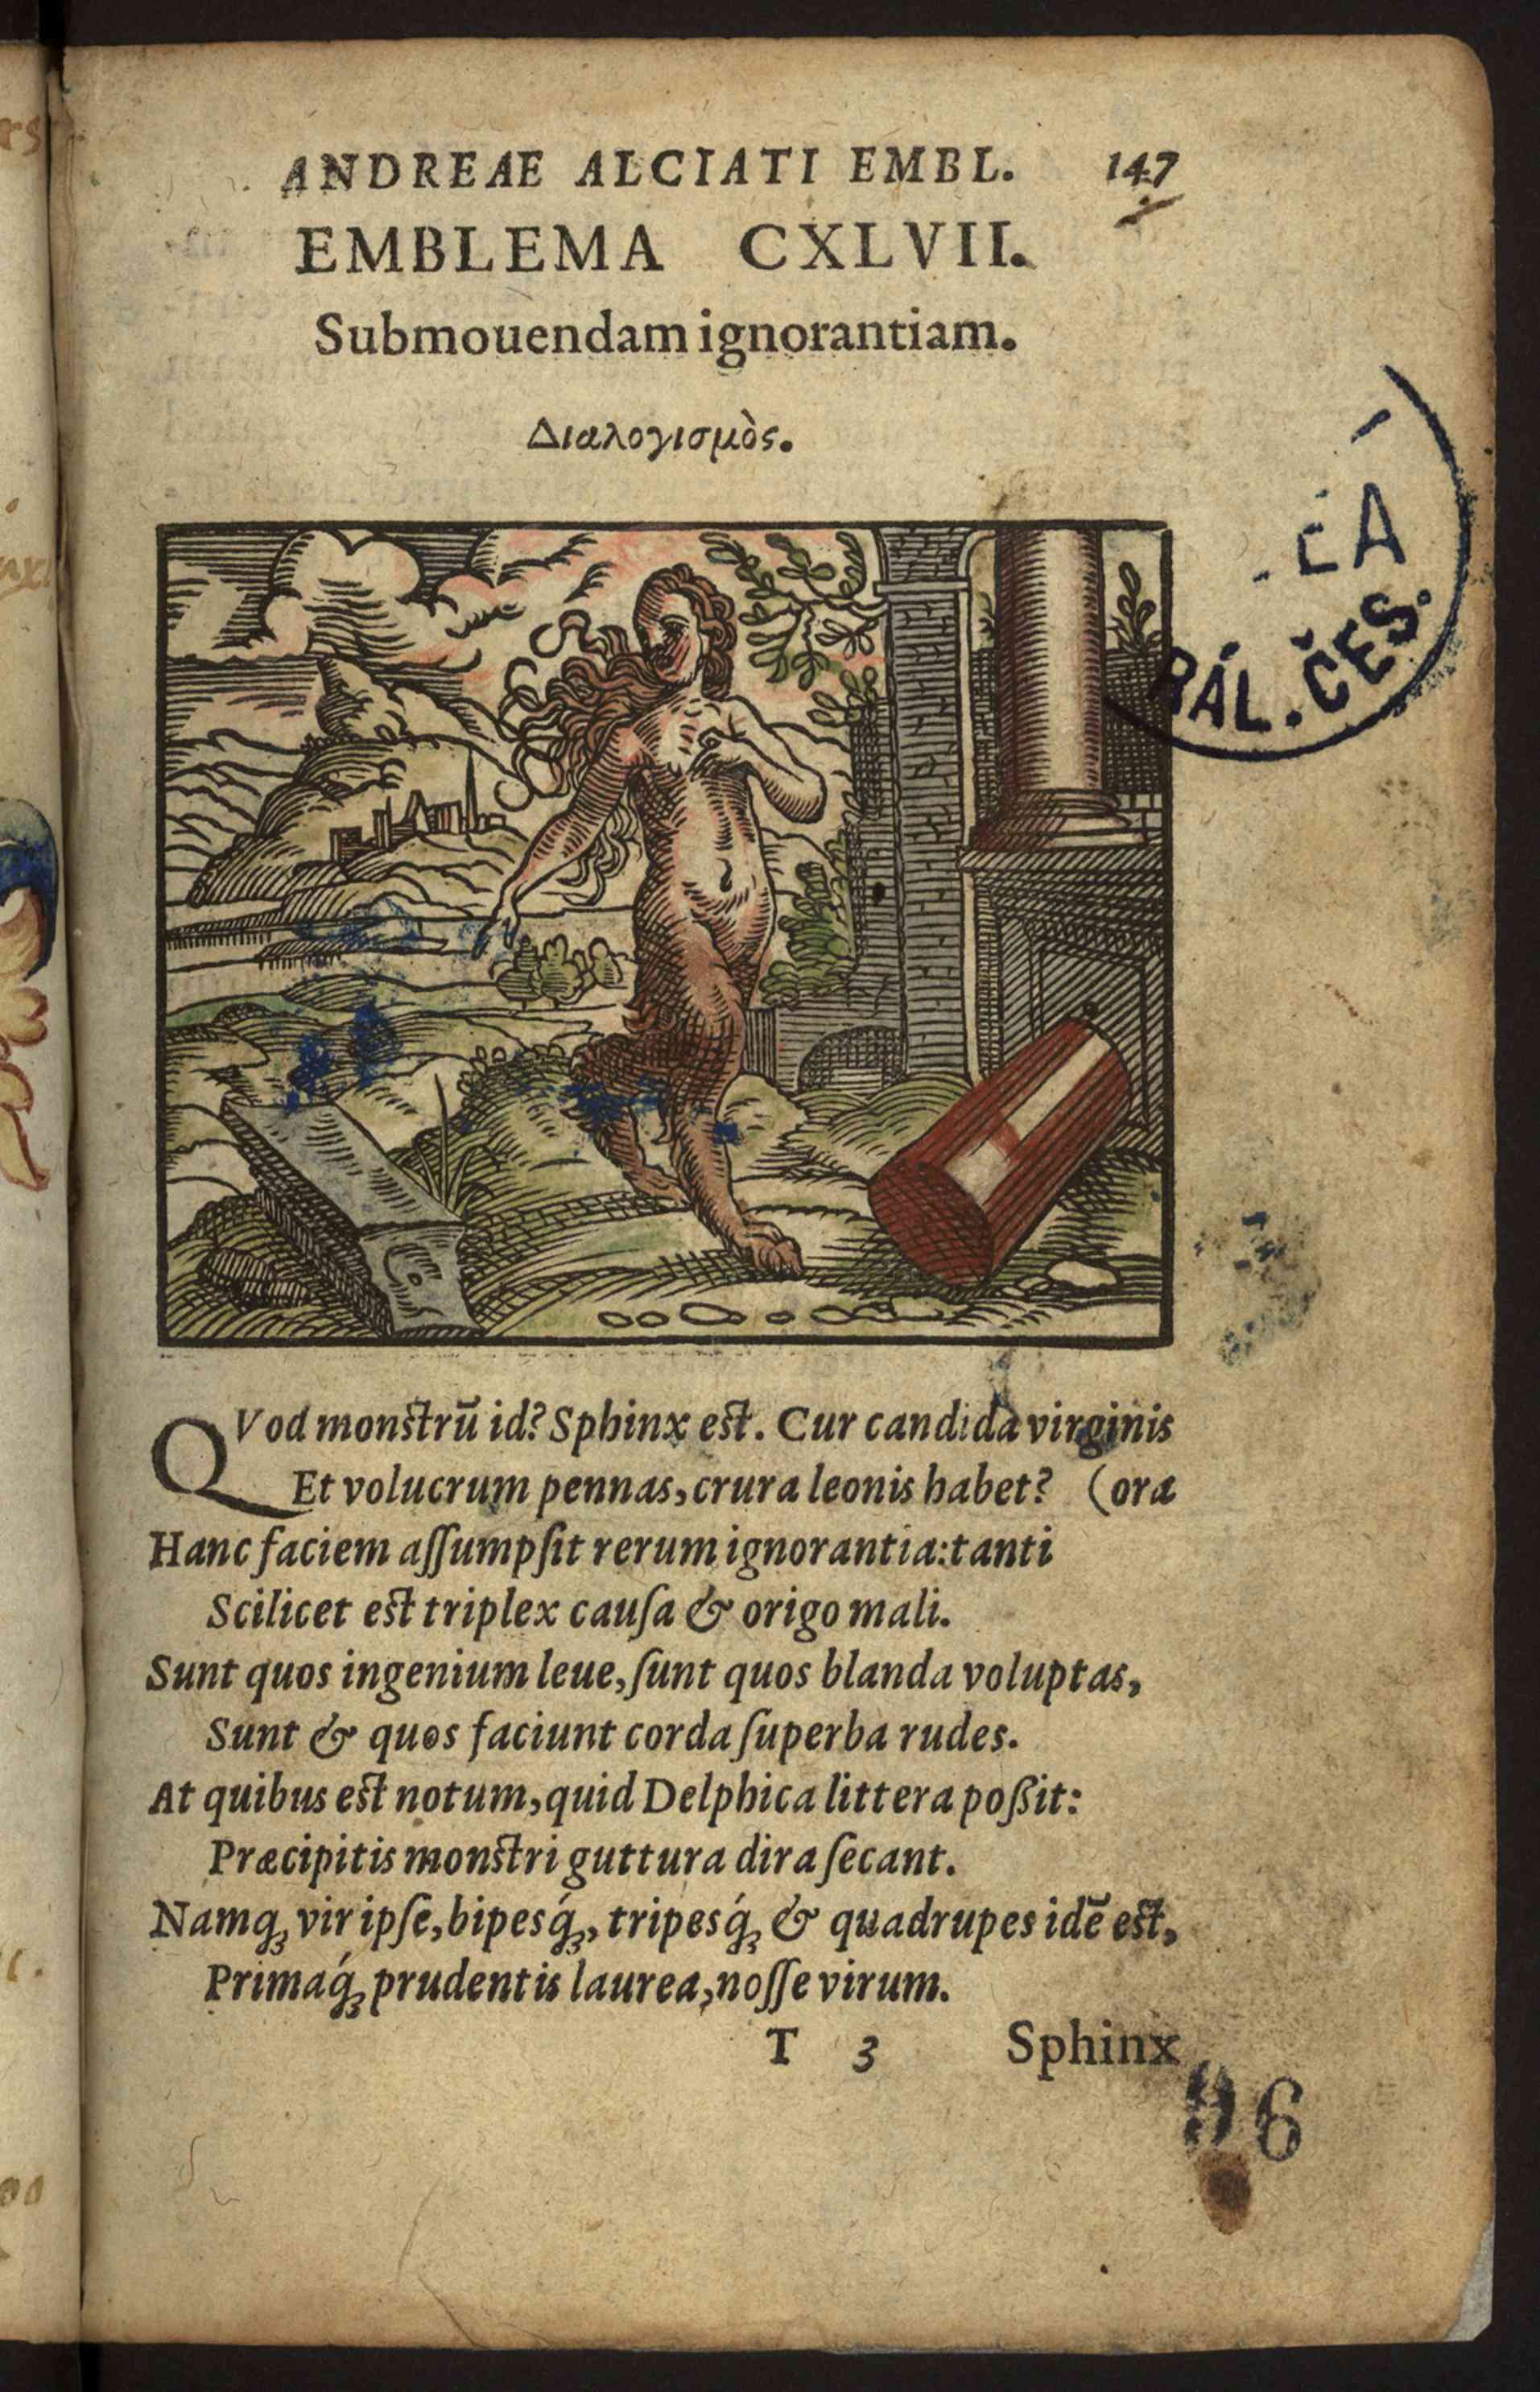 ANDREAE ALCIATI EMBL. 147
EMBLEMA CXLVII.
Submouendam ignorantiam.
Διαλογισμὸς.
RÁL. ČES.
QVod monstrū id? Sphinx est. Cur candida virginis
Et volucrum pennas, crura leonis habet? (ora
Hanc faciem aſſumpſit rerum ignorantia: tanti
Scilicet est triplex cauſa & origo mali.
Sunt quos ingenium leue, ſunt quos blanda voluptas,
Sunt & quos faciunt corda ſuperba rudes.
At quibus est notum, quid Delphica littera poßit:
Præcipitis monstri guttura dira ſecant.
Namq́; vir ipſe, bipesq́;, tripesq́; & quadrupes idē est,
Primaq́; prudentis laurea, noſſe virum.
T 3 Sphinx
96